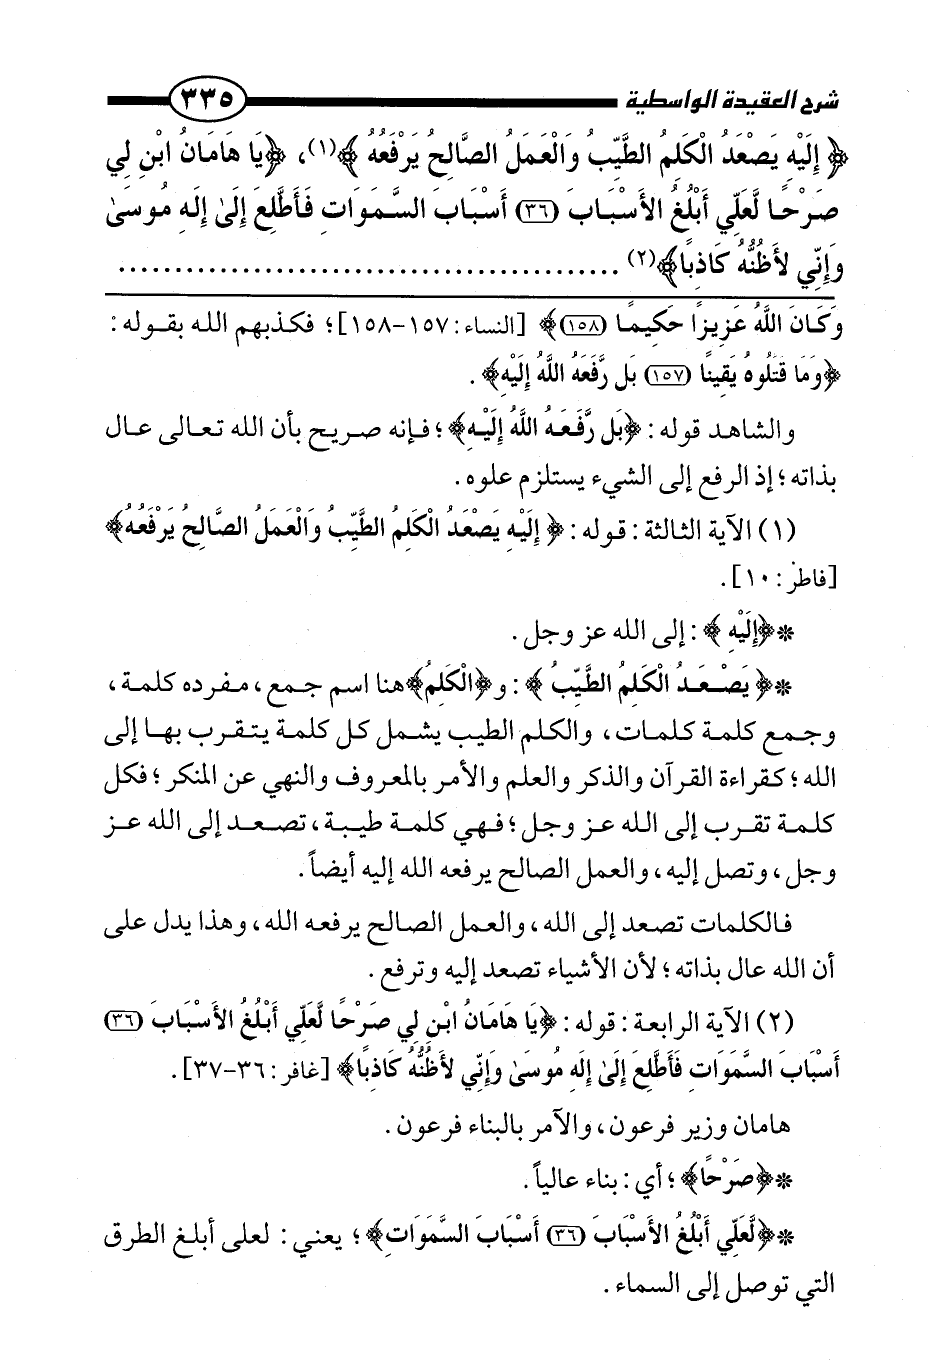 شرح العقيدة الواسطية ٣٣٥
﴿ إِلَيْهِ يَصْعَدُ الْكَلِمُ الطَّيِّبُ وَالْعَمَلُ الصَّالِحُ يَرْفَعُهُ ﴾(١)، ﴿يَا هَامَانُ ابْنِ لِي
صَرْحًا لَّعَلِّي أَبْلُغُ الأَسْبَابَ (٣٦) أَسْبَابَ السَّمَوَاتِ فَأَطَّلِعَ إِلَىٰ إِلَهِ مُوسَىٰ
وَإِنِّي لأَظُنُّهُ كَاذِبًا﴾(٢) ............................................
وَكَانَ اللَّهُ عَزِيزًا حَكِيمًا (١٥٨)﴾ [النساء: ١٥٧-١٥٨]؛ فكذبهم الله بقوله:
﴿وَمَا قَتَلُوهُ يَقِينًا (١٥٧) بَل رَّفَعَهُ اللَّهُ إِلَيْهِ﴾.
والشاهد قوله: ﴿بَل رَّفَعَهُ اللَّهُ إِلَيْهِ﴾؛ فإنه صريح بأن الله تعالى عال
بذاته؛ إذ الرفع إلى الشيء يستلزم علوه.
(١) الآية الثالثة: قوله: ﴿ إِلَيْهِ يَصْعَدُ الْكَلِمُ الطَّيِّبُ وَالْعَمَلُ الصَّالِحُ يَرْفَعُهُ﴾
[فاطر: ١٠].
*﴿إِلَيْهِ ﴾: إلى الله عز وجل.
*﴿ يَصْعَدُ الْكَلِمُ الطَّيِّبُ ﴾: و﴿الْكَلِمُ﴾هنا اسم جمع، مفرده كلمة،
وجمع كلمة كلمات، والكلم الطيب يشمل كل كلمة يتقرب بها إلى
الله؛ كقراءة القرآن والذكر والعلم والأمر بالمعروف والنهي عن المنكر؛ فكل
كلمة تقرب إلى الله عز وجل؛ فهي كلمة طيبة، تصعد إلى الله عز
وجل، وتصل إليه، والعمل الصالح يرفعه الله إليه أيضاً.
فالكلمات تصعد إلى الله، والعمل الصالح يرفعه الله، وهذا يدل على
أن الله عال بذاته؛ لأن الأشياء تصعد إليه وترفع.
(٢) الآية الرابعة: قوله: ﴿يَا هَامَانُ ابْنِ لِي صَرْحًا لَّعَلِّي أَبْلُغُ الأَسْبَابَ (٣٦)
أَسْبَابَ السَّمَوَاتِ فَأَطَّلِعَ إِلَىٰ إِلَهِ مُوسَىٰ وَإِنِّي لأَظُنُّهُ كَاذِبًا﴾ [غافر: ٣٦-٣٧].
هامان وزير فرعون، والآمر بالبناء فرعون.
*﴿صَرْحًا﴾؛ أي: بناء عالياً.
*﴿لَّعَلِّي أَبْلُغُ الأَسْبَابَ (٣٦) أَسْبَابَ السَّمَوَاتِ﴾؛ يعني: لعلى أبلغ الطرق
التي توصل إلى السماء.